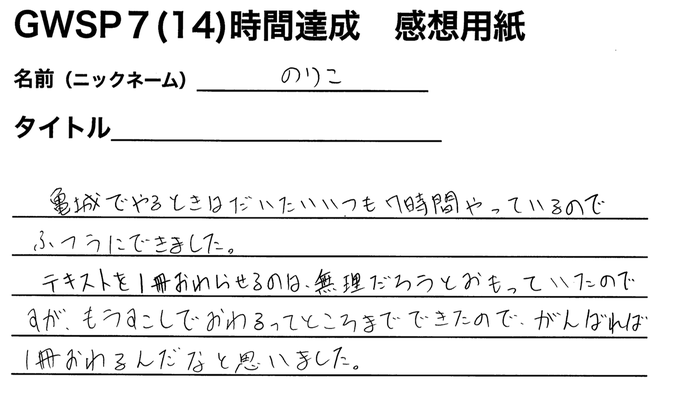 GWSP7(14)時間達成　感想用紙
名前（ニックネーム） のりこ
タイトル
亀城でやるときはだいたいいつも7時間やっているので
ふつうにできました。
テキストを1冊おわらせるのは、無理だろうとおもっていたので
すが、もうすこしでおわるってところまでできたので、がんばれば
1冊おわるんだなと思いました。